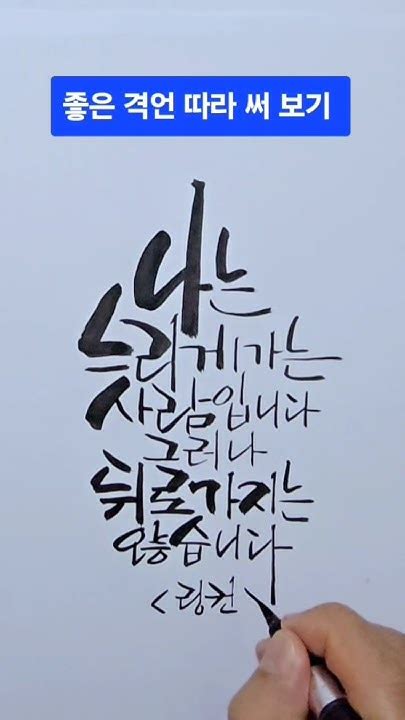 좋은 격언 따라 써 보기
나는
느리게 가는
사람입니다
그러나
뒤로가지는
않습니다
<링컨